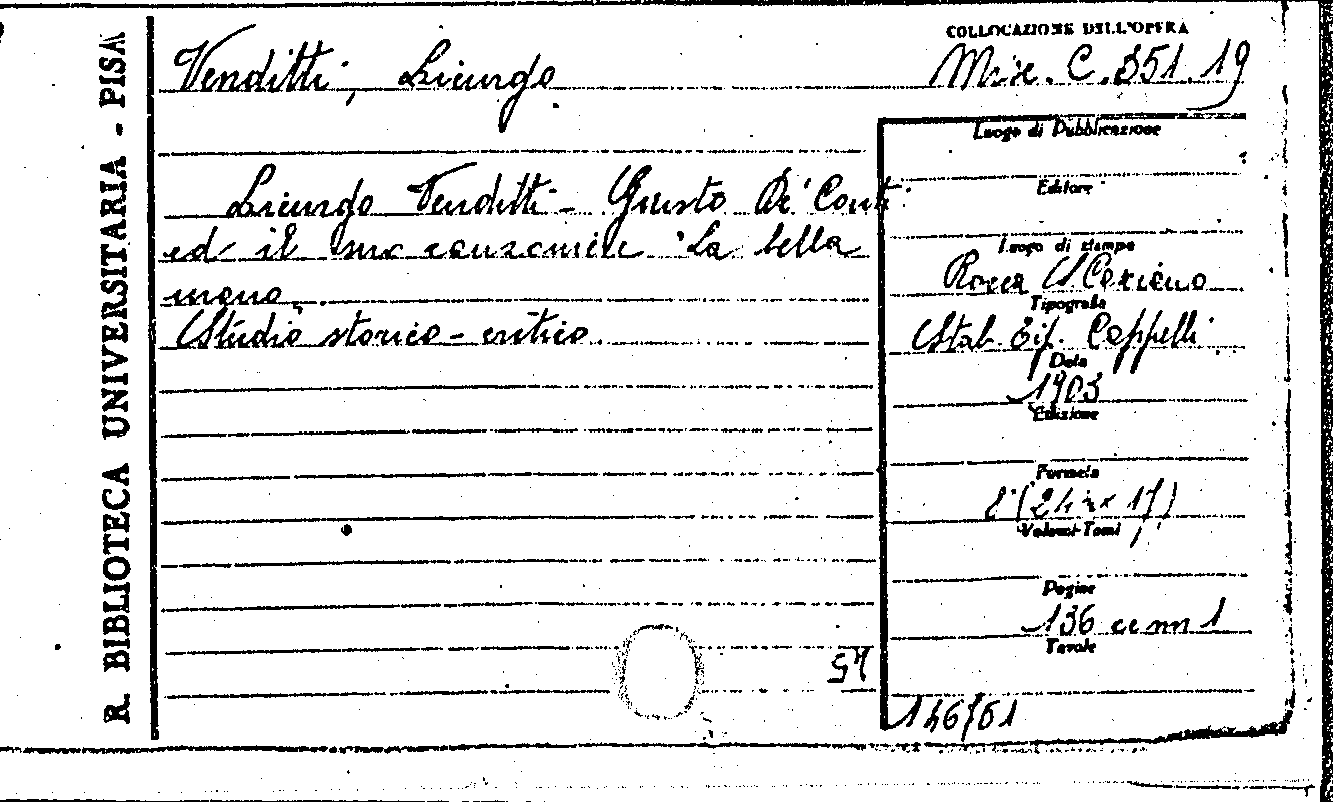 R. BIBLIOTECA UNIVERSITARIA - PISA
Venditti, Licurgo
COLLOCAZIONE DELL'OPERA
Misc. C. 351. 19
Licurgo Venditti - Giusto De' Conti
ed il suo canzoniere "La bella
mano".
Studio storico-critico.
Luogo di Pubblicazione
Editore
Luogo di stampa
Rocca S Casciano
Tipografia
Stab. Tip. Cappelli
Data
1903
Edizione
Formato
8° (24 1/2 x 17)
Volumi-Tomi
Pagine
136 ce nn 1
Tavole
146/61